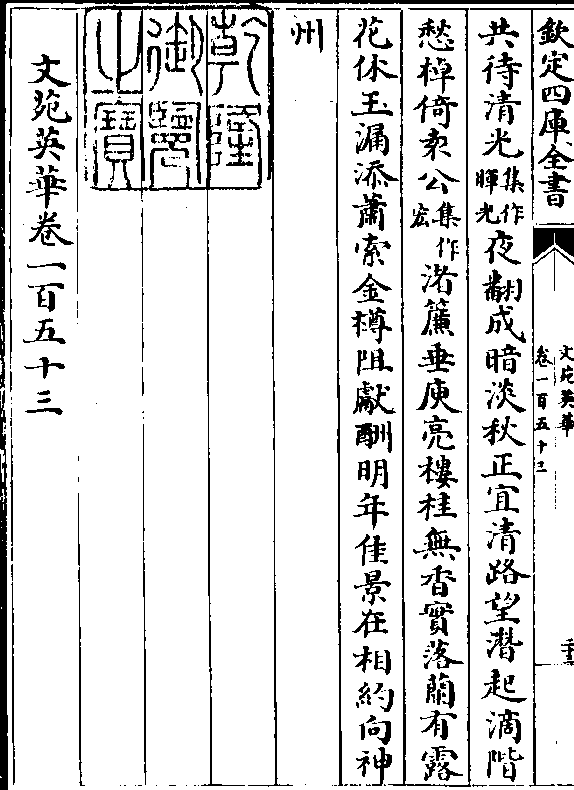 欽定四庫全書
文苑英華
卷一百五十三
共待清光集作暉光夜翻成暗淡秋正宜清路望潛起滴階
愁棹倚袁公集作宏渚簾垂庾亮樓桂無香實落蘭有露
花休玉漏添蕭索金樽阻獻酬明年佳景在相約向神
州
乾隆御覽之寶
文苑英華卷一百五十三